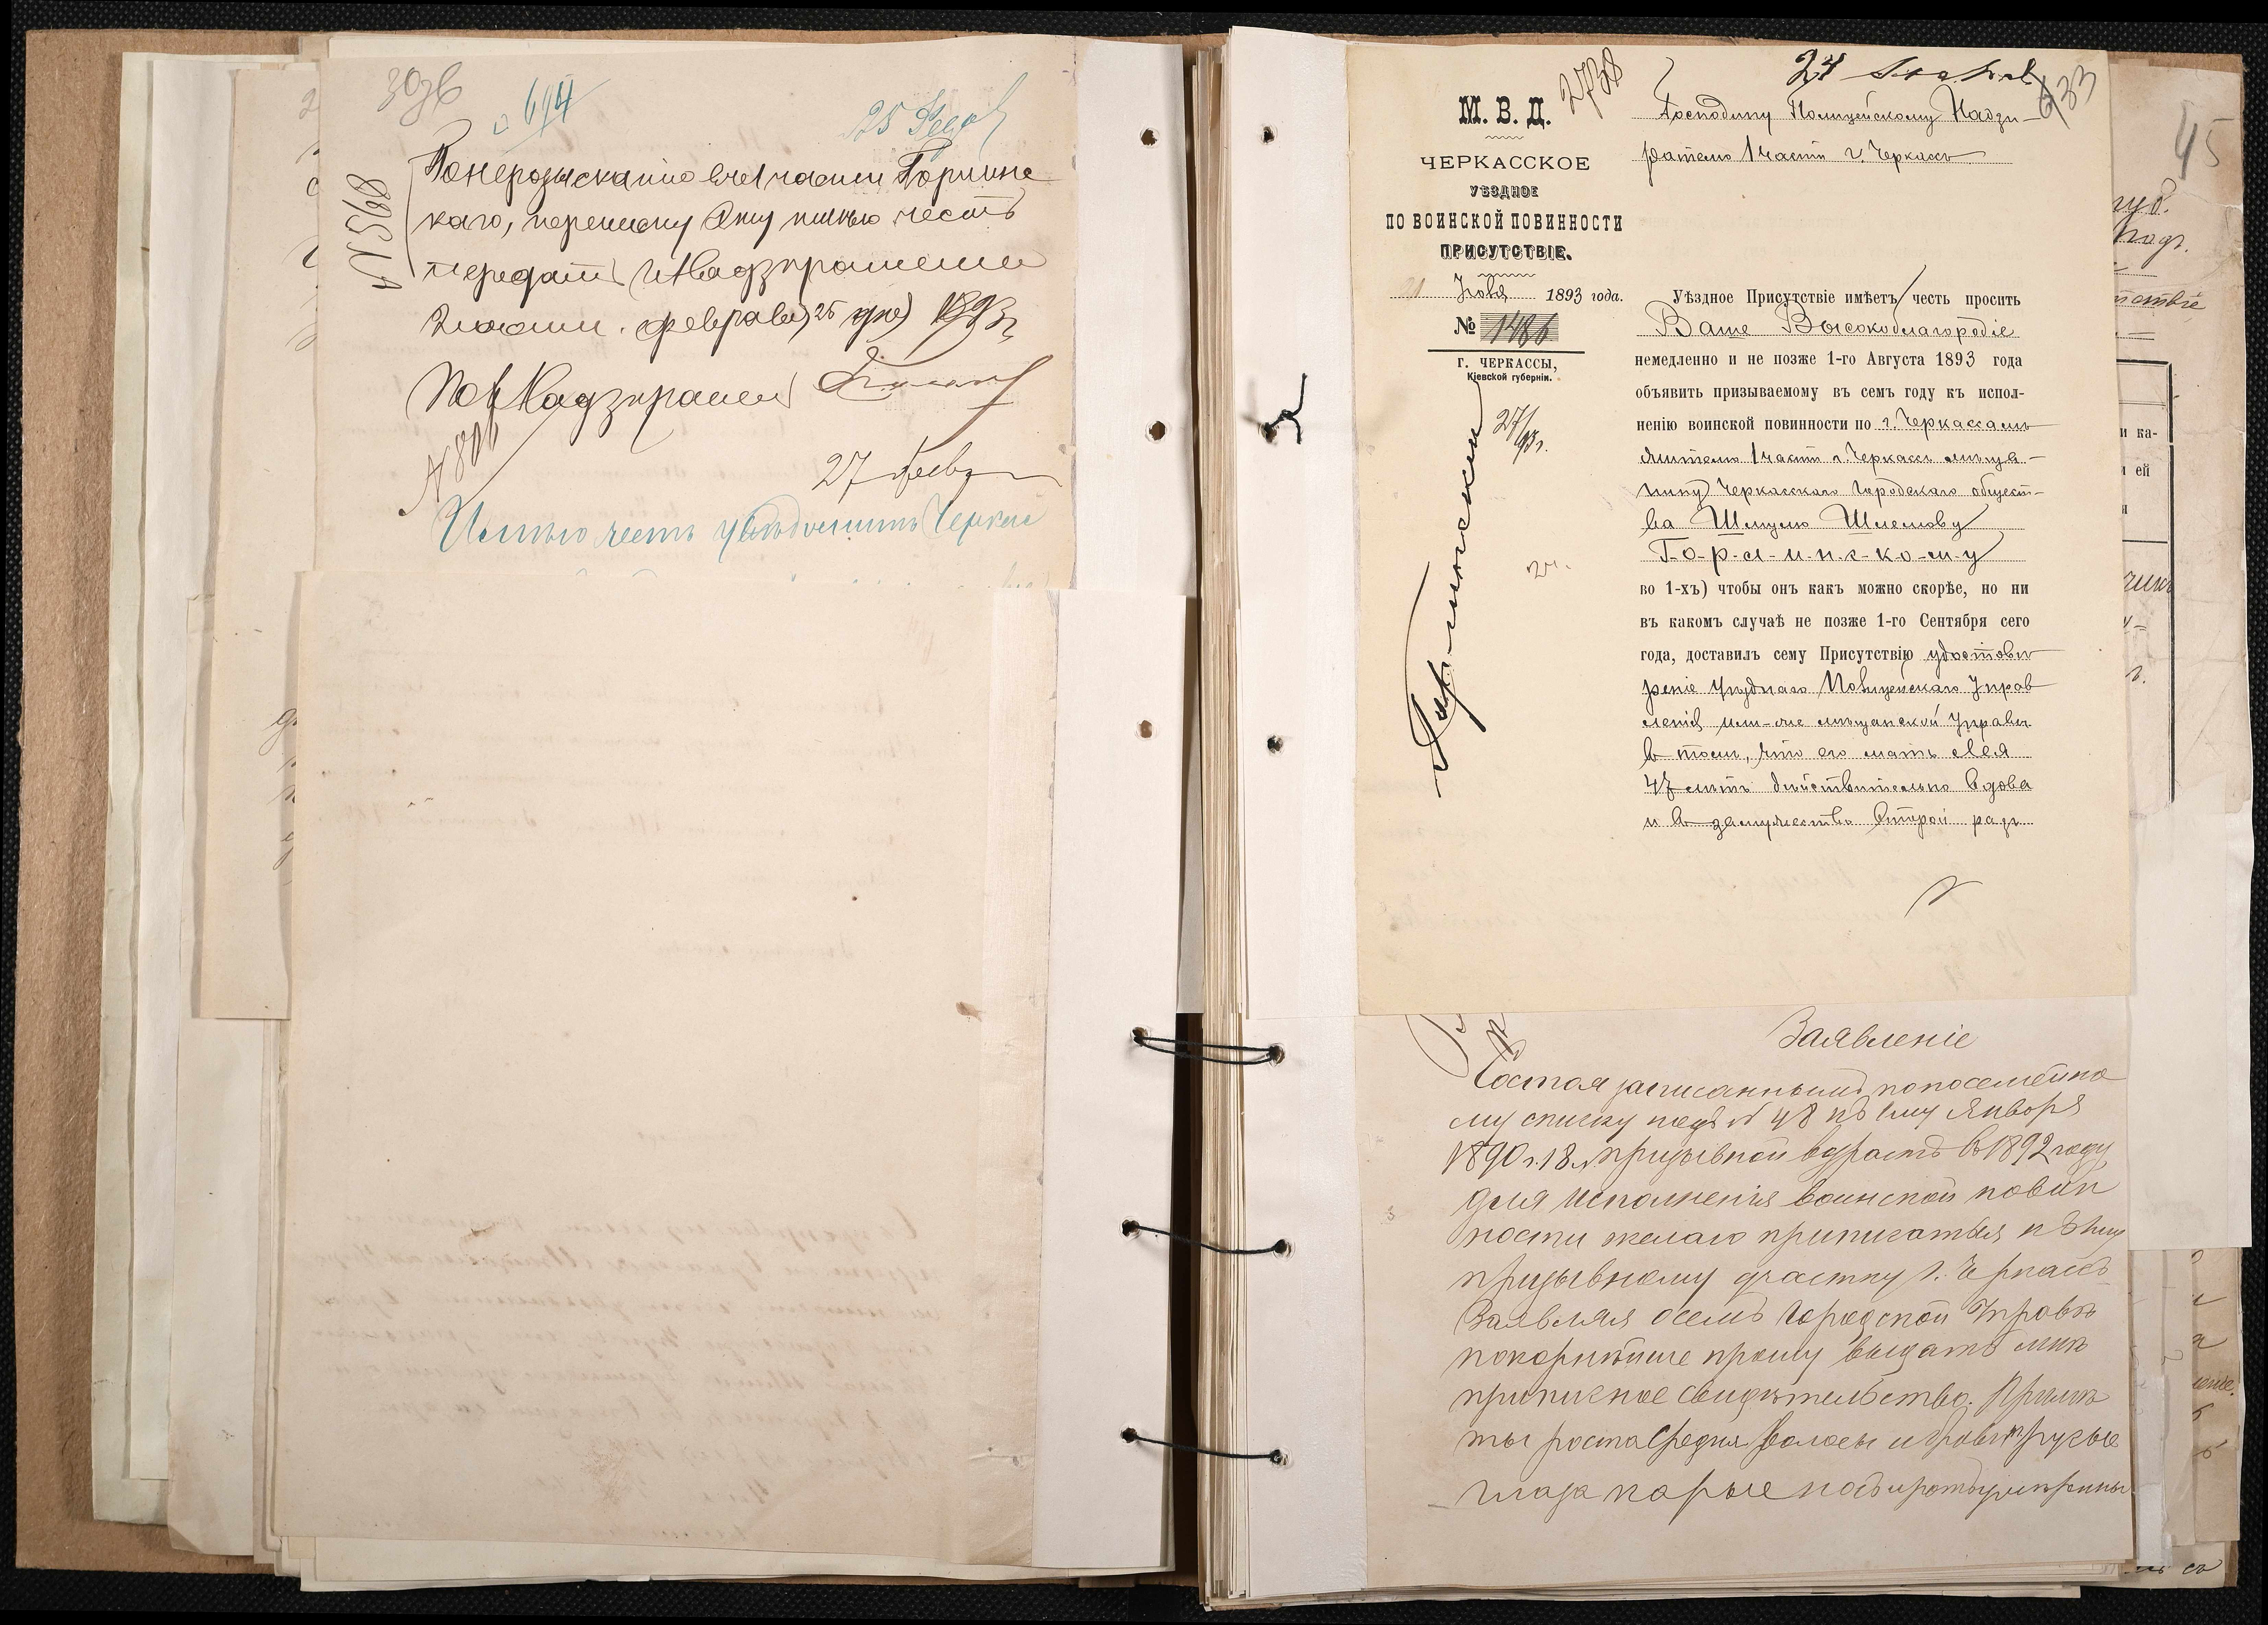 3036
694
25 Февр
№ 568
По нерозысканію въ 1 части Горлинс
каго, переписку эту имѣю честь
передать г. Надзирателю
2 части. февраля 25 дня 1893 г.
Пол Надзиратель
№ 806
27 Февр
Имѣю честь увѣдомить Черкас
2738
24
633
М. В. Д.
ЧЕРКАССКОЕ
УѢЗДНОЕ
ПО ВОИНСКОЙ ПОВИННОСТИ
ПРИСУТСТВІЕ.
1893 года.
№ 1486
г. ЧЕРКАССЫ,
Кіевской губерніи.
27/93 г.
Господину Полицейскому Надзи-
рателю 1 части г. Черкассъ
Уѣздное Присутствіе имѣетъ честь просить
Ваше Высокоблагородіе
немедленно и не позже 1-го Августа 1893 года
объявить призываемому въ семъ году къ испол-
ненію воинской повинности по г. Черкассамъ
жителю 1 части г. Черкассъ мѣща-
нину Черкасскаго Городскаго общест-
ва Шмулю Шлемову
Г-о-р-л-и-н-с-к-о-м-у
во 1-хъ) чтобы онъ какъ можно скорѣе, но ни
въ какомъ случаѣ не позже 1-го Сентября сего
года, доставилъ сему Присутствію удостовѣ
реніе Уѣзднаго Полицейскаго Управ
ленія или-же мѣщанской Управы
въ томъ, что его мать Лея
47 лѣтъ дѣйствительно вдова
и въ замужество второй разъ
45
Заявленіе
Состоя записаннымъ по посемейно
му списку подъ № 48 къ 1му Января
1890 г. 18 л призывной возрастъ въ 1892 году
для исполненія воинской повин
ности желаю приписаться къ 1му
призывному участку г. Черкассъ
Заявляя о семъ Городской Управѣ
покорнѣйше прошу выдать мнѣ
приписное свидѣтельство. Примѣ
ты роста средня волосы и брови русые
глаза карые носъ и ротъ умѣренны